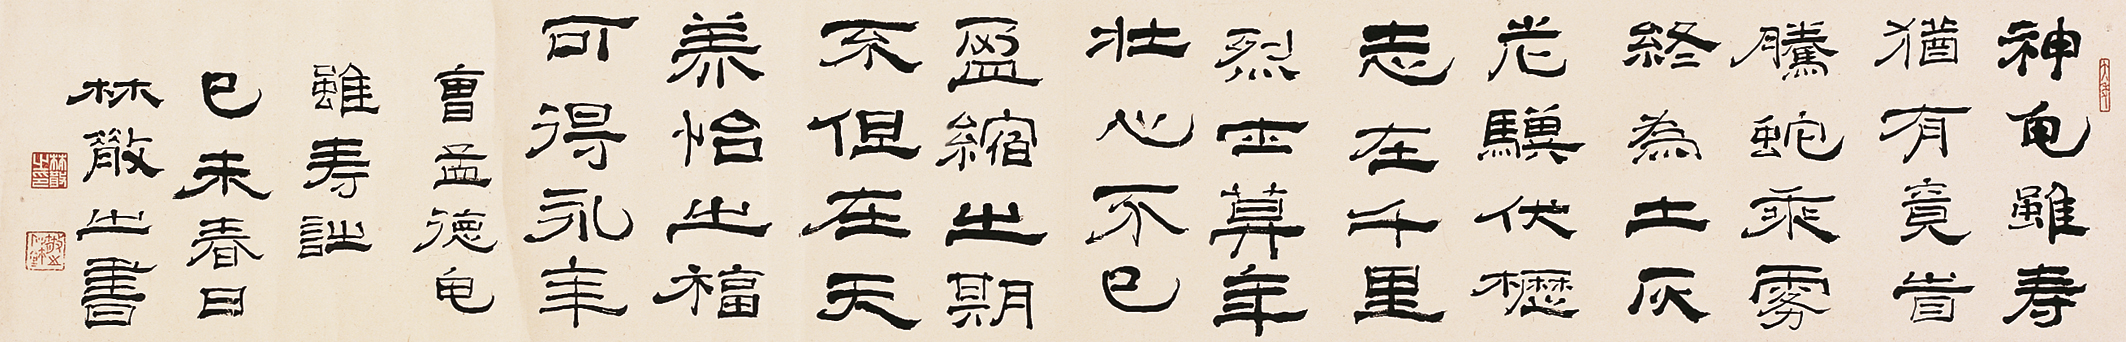 神龟雖寿
猶有竟旹
騰蛇乘雾
終為土灰
老驥伏櫪
志在千里
烈士莫年
壯心不已
盈縮之期
不但在天
养怡之福
可得永年
曹孟德龟
雖寿詩
己未春日
林散之書
林散之印